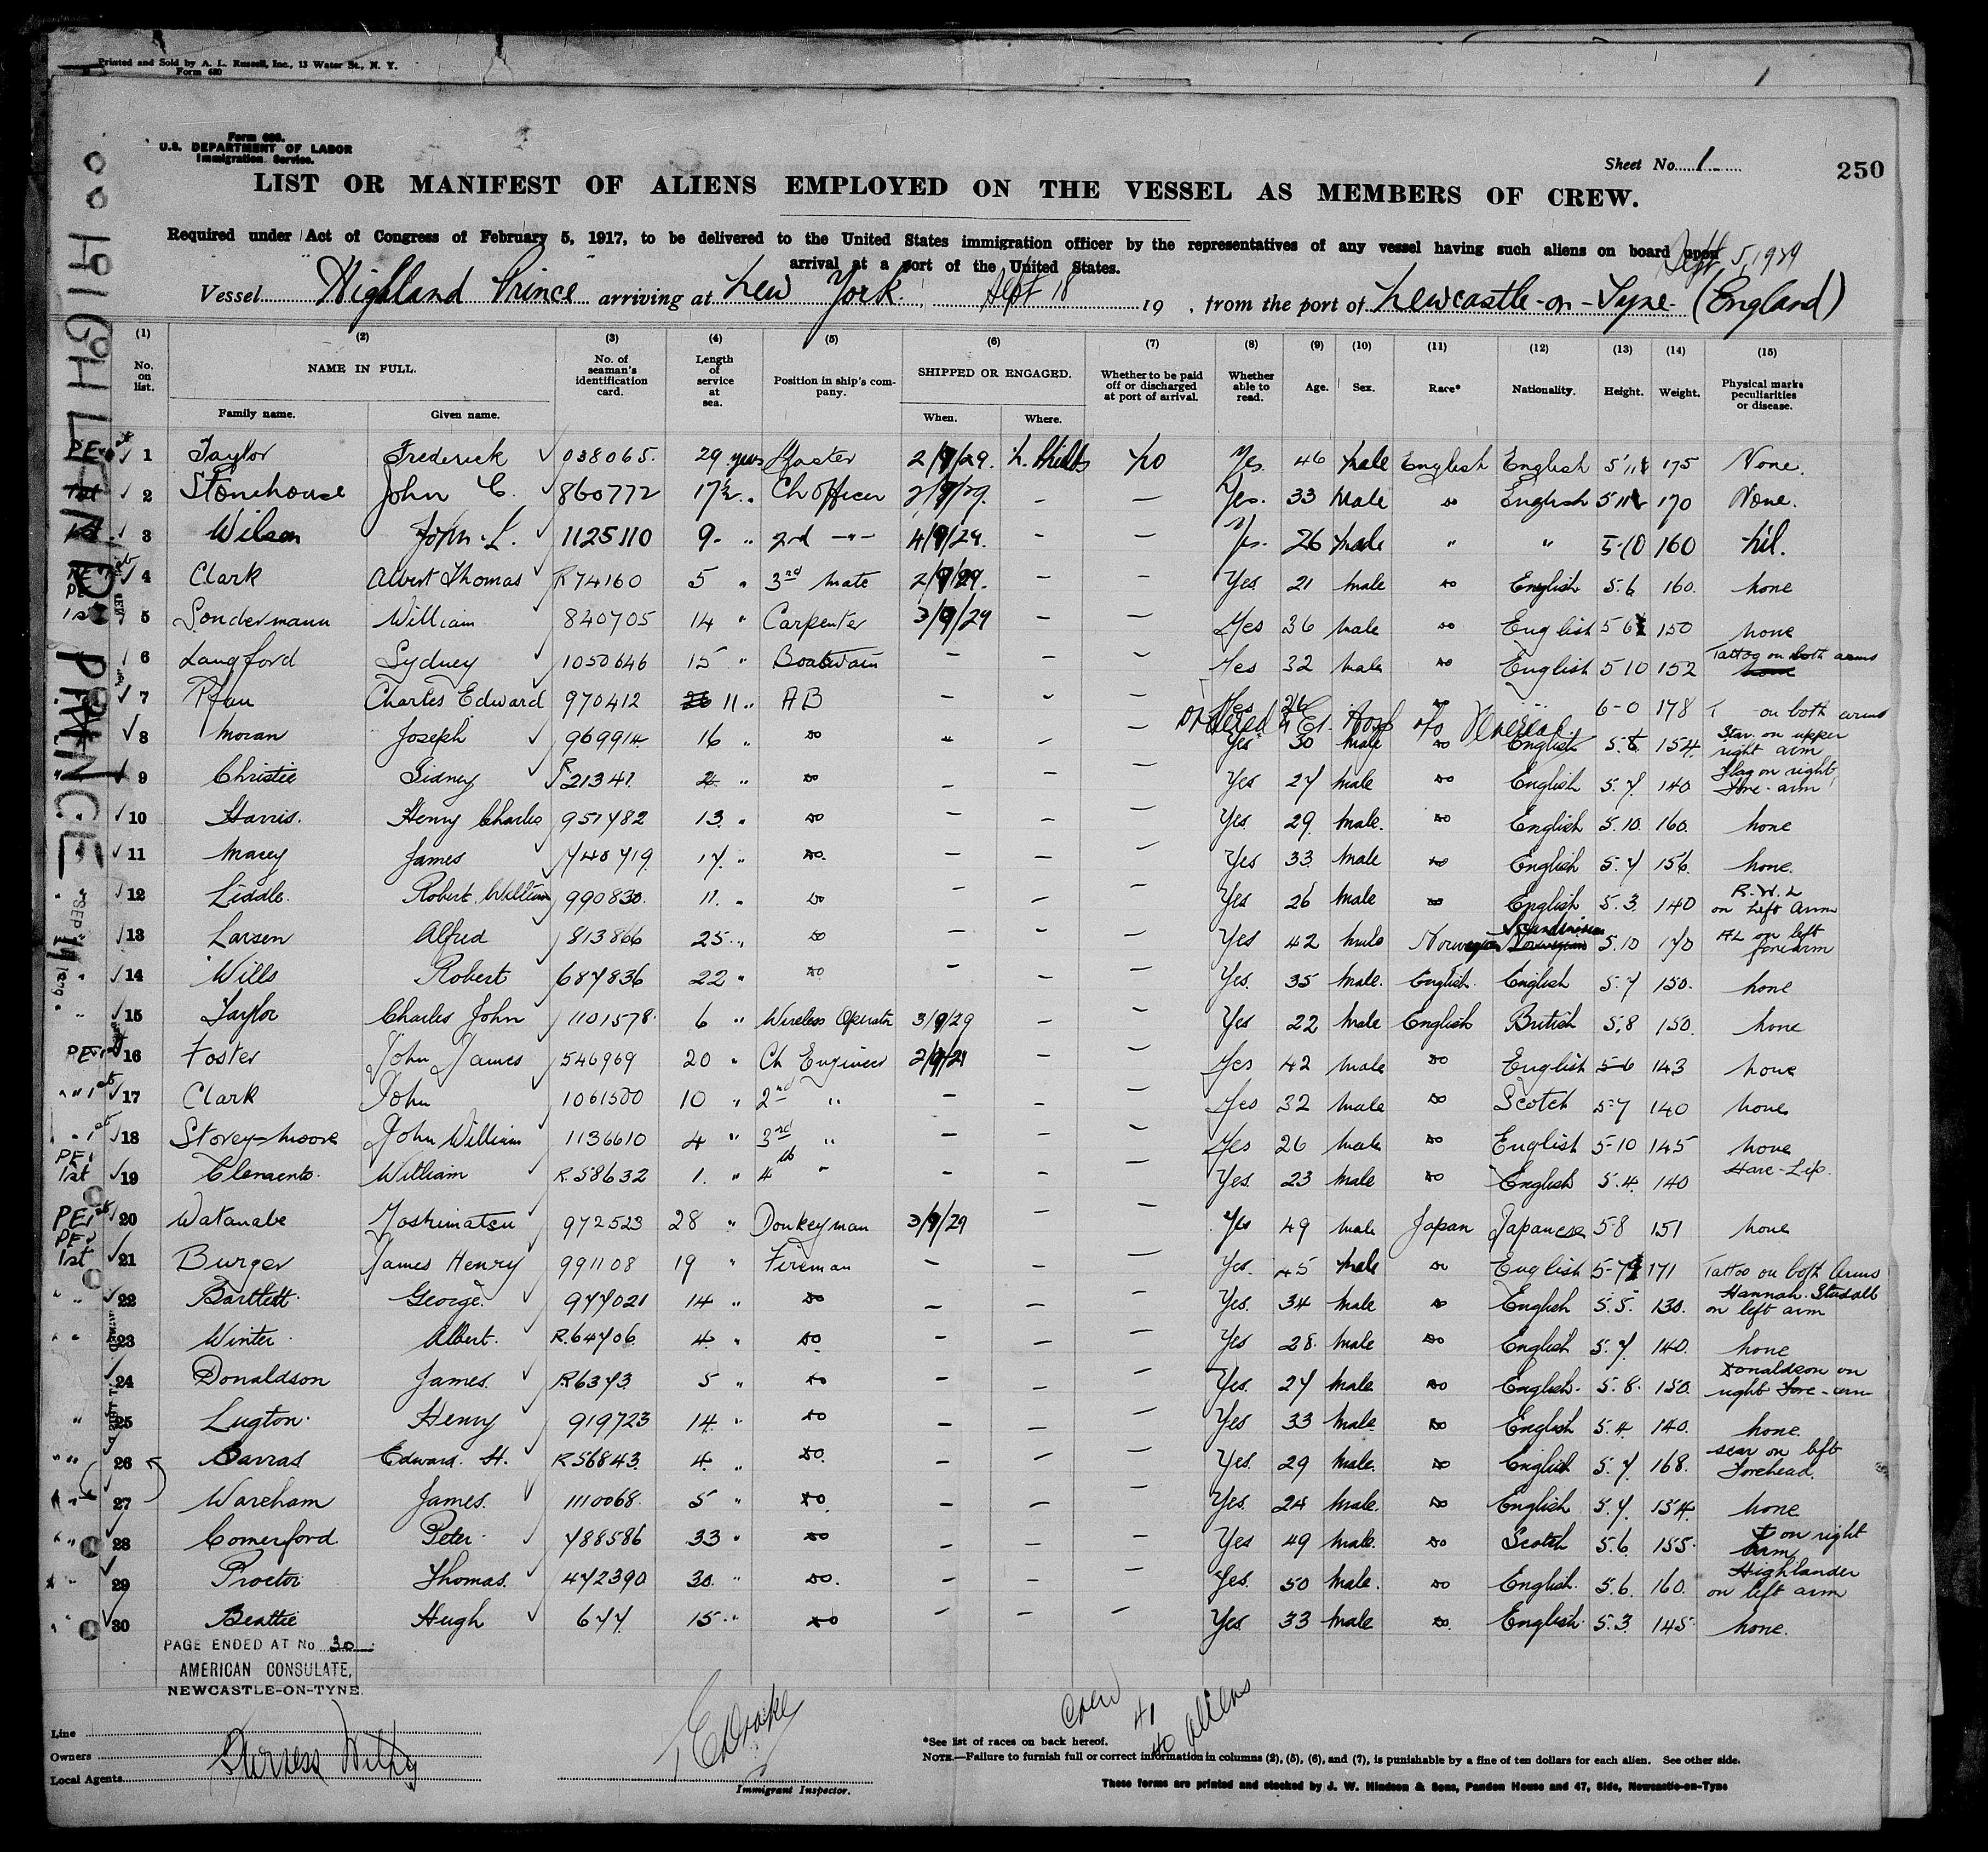 Printed and Sold by A. L. Russell, Inc., 13 Water St., N. Y.
Form 680
Form 680.
U.S. DEPARTMENT OF LABOR
Immigration Service.
Sheet No. 1
250
LIST OR MANIFEST OF ALIENS EMPLOYED ON THE VESSEL AS MEMBERS OF CREW.
Required under Act of Congress of February 5, 1917, to be delivered to the United States immigration officer by the representatives of any vessel having such aliens on board upon
arrival at a port of the United States.
Sept 5, 1929
Vessel "Highland Prince" arriving at New York. Sept 18 19 , from the port of Newcastle-on-Tyne (England)
HIGHLAND PRINCE
(1) (2) (3) (4) (5) (6) (7) (8) (9) (10) (11) (12) (13) (14) (15)
No. on list. NAME IN FULL. No. of seaman's identification card. Length of service at sea. Position in ship's company. SHIPPED OR ENGAGED. Whether to be paid off or discharged at port of arrival. Whether able to read. Age. Sex. Race* Nationality. Height. Weight. Physical marks peculiarities or disease.
Family name. Given name. When. Where.
1 Taylor Frederick 038065. 29 years Master 2/9/29. N. Shields No Yes. 46 Male English English 5'11 175 None.
2 Stonehouse John C. 860772 17½ " Ch Officer 2/9/29. - — Yes. 33 Male do English 5 11 170 None.
3 Wilson John L. 1125110 9 - " 2nd -"- 4/9/29. - — Yes. 26 Male " " 5-10 160 Nil.
4 Clark Albert Thomas R 74160 5 " 3rd Mate 2/9/29. — — Yes 21 Male do English 5.6 160. None
5 Sondermann William 840705 14 " Carpenter 3/9/29 — — Yes 36 Male do English 5 6 150 None
6 Langford Sydney 1050646 15 " Boatswain — — — Yes 32 Male do English 5 10 152 Tattoo on both arms
7 Charles Edward 970412 11 " AB — - — Yes 26 do 6-0 178 on both arms
8 Moran Joseph 969914 16 " do - — — Yes 30 Male do English 5.8 154. Star. on upper right arm
9 Christie Sidney R 21341. 2 " do — — — Yes 27 Male do English 5.7. 140 Flag on right fore-arm
10 Harris. Henry Charles 951782 13. " do — — — Yes 29. Male. do English 5.10. 160. None
11 Macey James 740719. 17. " do. — — — Yes 33. Male do English 5.7 156. None.
12 Liddle. Robert William 990830. 11. " do — — — Yes 26 Male do English 5.3. 140 R.W.L on Left Arm
13 Larsen Alfred 813866 25 " do — — — Yes 42 Male Norwegian Scandinavian 5.10 170 AL on left forearm
14 Wills Robert 687836 22 " do — — — Yes. 35 Male. English. English 5.7 150. None
15 Taylor Charles John 1101578. 6 " Wireless Operator 3/9/29 — — Yes 22 Male English British 5.8 150. None
16 Foster John James 546969 20 " Ch Engineer 2/9/29 — — Yes 42 Male do English 5-6 143 None
17 Clark John 1061500 10 " 2nd " — — — Yes 32 Male do Scotch 5-7 140 None
18 Storey-Moore John William 1136610 4 " 3rd " — — — Yes 26 Male do English 5-10 145 None
19 Clements. William R.58632 1. " 4th " — — — Yes. 23 Male do English 5.4. 140 Hare-Lip.
20 Watanabe Yoshimatsu 972523 28 " Donkeyman 3/9/29 — — Yes 49 Male Japan Japanese 5-8 151 None
21 Burger James Henry 991108 19 " Fireman — — — Yes. 45 Male do English 5-7 171 Tattoo on both Arms
22 Bartlett George. 977021 14 " do — — — Yes. 34 Male do English 5.5. 130. Hannah. on left arm
23 Winter Albert. R.64706. 4. " do — — — Yes 28. Male do English 5.7. 140. None
24 Donaldson James. R6373. 5 " do — — — Yes. 27 Male. do English. 5.8. 150. Donaldson on right fore-arm
25 Lugton. Henry 919723 14. " do — — — Yes 33 Male. do English 5.4. 140. None.
26 Barras Edward. H. R56843. 4. " do. — — — Yes. 29 Male. do English 5.7. 168. scar on left Forehead.
27 Wareham James. 1110068. 5 " do. — — — Yes. 24 Male. do English 5.7. 154. None
28 Comerford Peter. 788586 33 " do — — — Yes 49 Male. do Scotch 5.6. 155. on right Arm
29 Proctor Thomas. 472390 30. " do. — — — Yes. 50 Male. do English. 5.6. 160. Highlander on left arm
30 Beattie Hugh 677. 15 " do — — — Yes 33 Male do. English. 5.3. 145. None.
PAGE ENDED AT No 30
AMERICAN CONSULATE,
NEWCASTLE-ON-TYNE.
Crew
41
40 aliens
Line
Owners
Local Agents
Furness Withy
Immigrant Inspector.
*See list of races on back hereof.
NOTE.—Failure to furnish full or correct information in columns (2), (5), (6), and (7), is punishable by a fine of ten dollars for each alien. See other side.
These forms are printed and stocked by J. W. Hindson & Sons, Pandon House and 47, Side, Newcastle-on-Tyne